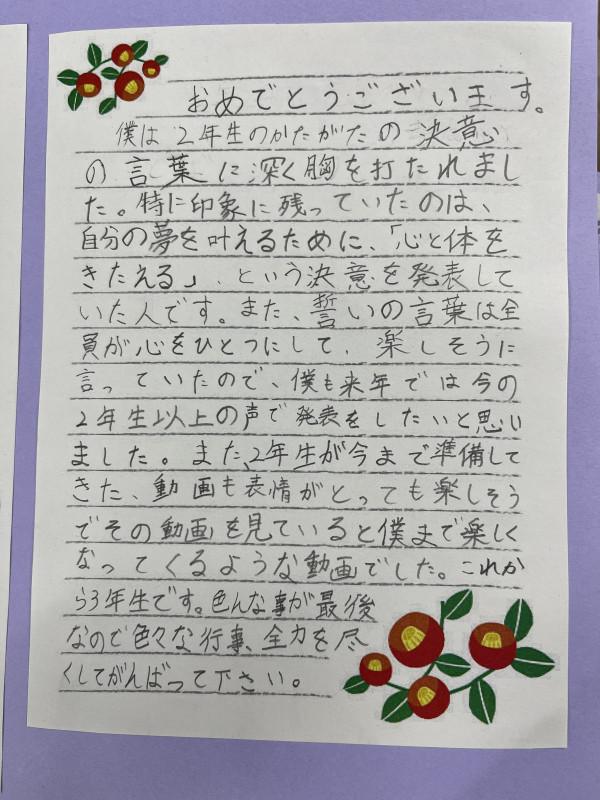 おめでとうございます。
僕は2年生のかたがたの決意
の言葉に深く胸を打たれまし
た。特に印象に残っていたのは、
自分の夢を叶えるために、「心と体を
きたえる」、という決意を発表して
いた人です。また、誓いの言葉は全
員が心をひとつにして、楽しそうに
言っていたので、僕も来年では今の
2年生以上の声で発表をしたいと思い
ました。また、2年生が今まで準備して
きた、動画も表情がとっても楽しそう
でその動画を見ていると僕まで楽しく
なってくるような動画でした。これか
ら3年生です。色んな事が最後
なので色々な行事、全力を尽
くしてがんばって下さい。